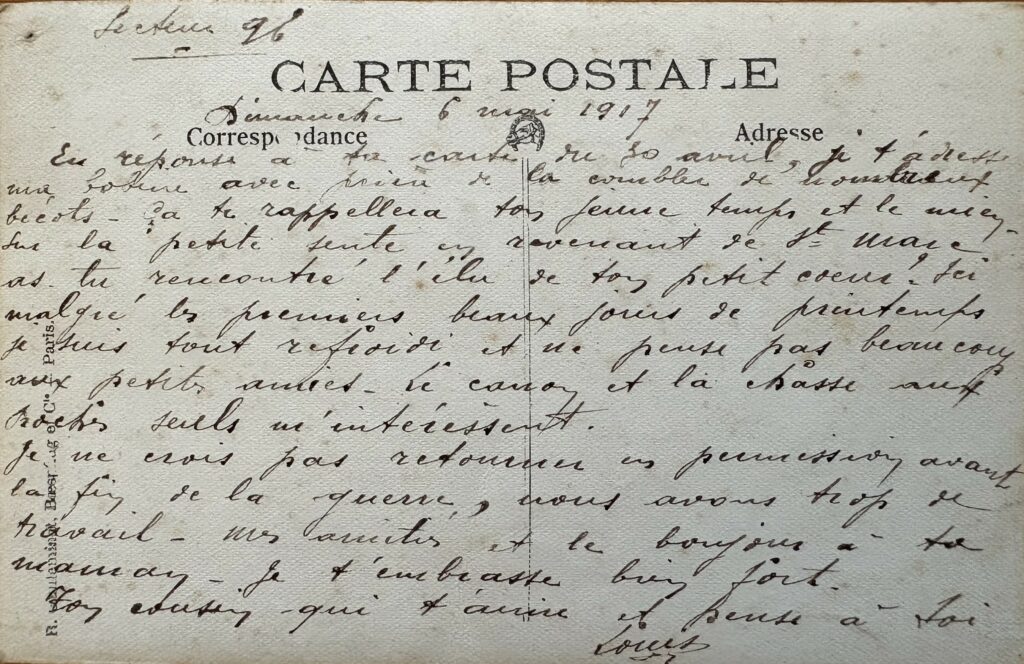 Secteur 96
CARTE POSTALE
Dimanche 6 mai 1917
Correspondance
Adresse
En réponse a ta carte du 30 avril, je t'adresse
ma bobine avec prière de la combler de nombreux
bécots - Ça te rappellera ton jeune temps et le mien -
Sur la petite sente en revenant de St Marc
as-tu rencontré l'élu de ton petit coeur? Ici
malgré les premiers beaux jours de printemps
je suis tout refroidi et ne pense pas beaucoup
aux petites amies - Le canon et la chasse aux
Boches seuls m'intéressent.
Je ne crois pas retourner en permission avant
la fin de la guerre, nous avons trop de
travail - Mes amitiés et le bonjour à ta
maman - Je t'embrasse bien fort -
Ton cousin qui t'aime et pense à toi
Louis
R. et Cie Paris.